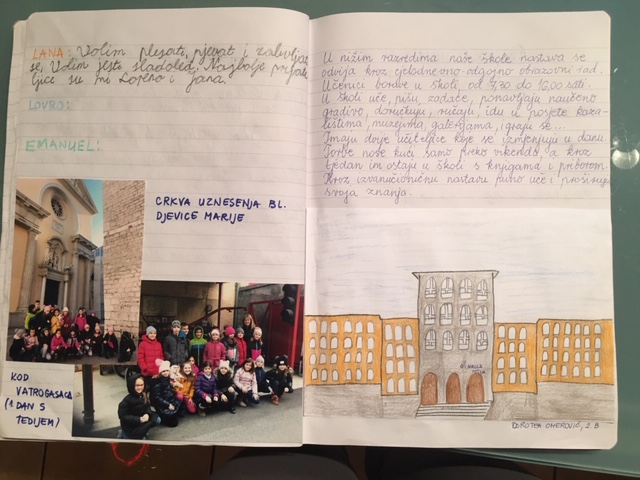 LANA: Volim plesati, pjevati i zabavljat
se. Volim jesti sladoled. Najbolje prijate
ljice su mi Lorena i Jana.
LOVRO:
EMANUEL:
CRKVA UZNESENJA BL.
DJEVICE MARIJE
KOD
VATROGASACA
(1 DAN S
TEDIJEM)
U nižim razredima naše škole nastava se
odvija kroz cjelodnevno-odgojno obrazovni rad.
Učenici borave u školi, od 7,30 do 16,00 sati.
U školi uče, pišu, zadaće, ponavljaju naučeno
gradivo, doručkuju, ručaju, idu u posjete kaza-
lištima, muzejima, galerijama, igraju se...
Imaju dvije učiteljice koje se izmjenjuju u danu.
Torbe nose kući samo preko vikenda, a kroz
tjedan im ostaju u školi s knjigama i priborom.
Kroz izvanučioničnu nastavu puno uče i proširuju
svoja znanja.
DOROTEA OMEROVIĆ, 2.B